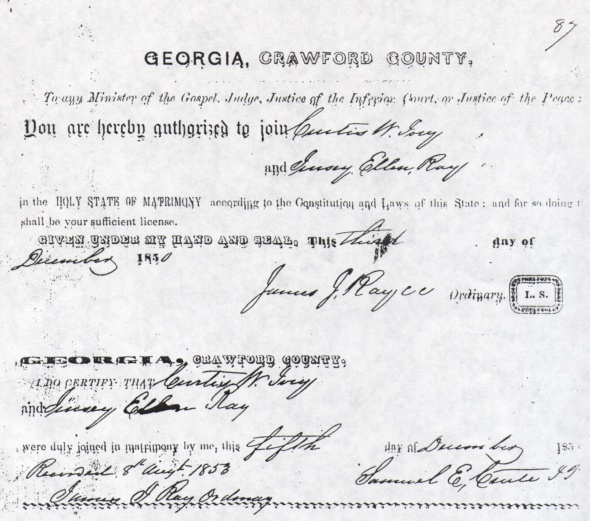 87
GEORGIA, CRAWFORD COUNTY,
To any Minister of the Gospel, Judge, Justice of the Inferior Court, or Justice of the Peace:
You are hereby authorized to join Curtis W. Ivey
and Ellen Ray
in the HOLY STATE OF MATRIMONY according to the Constitution and Laws of this State: and for so doing t
shall be your sufficient license.
GIVEN UNDER MY HAND AND SEAL, This third day of
December 1850
James J. Ray cc Ordinary. L. S.
GEORGIA, CRAWFORD COUNTY,
I DO CERTIFY THAT Curtis W. Ivey
and Ellen Ray
were duly joined in matrimony by me, this fifth day of December 185
Recorded 8th Augt 1853
Samuel E,
James J Ray Ordinary